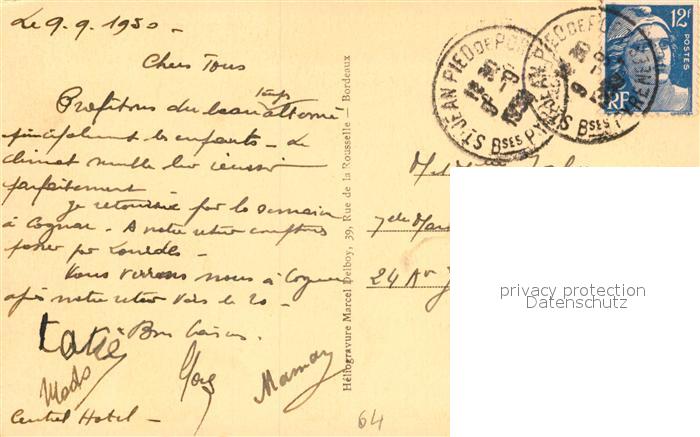 Le 9.9.1950 -
Chers Tous
temps
Profitons du beau
principalement les enfants - Le
climat semble leur réussir
parfaitement -
Je retourne par la semaine
à Cognac - A notre retour comptons
passer par Lourdes -
Vous verrons nous à Cognac
après notre retour vers le 20 -
Bons baisers.
Maman
Central Hotel -
64
Héliogravure Marcel Delboy, 39, Rue de la Rousselle - Bordeaux
ST JEAN PIED DE PORT
BSES PYRENEES
12F
POSTES
RF
7 de
24 Av
privacy protection
Datenschutz